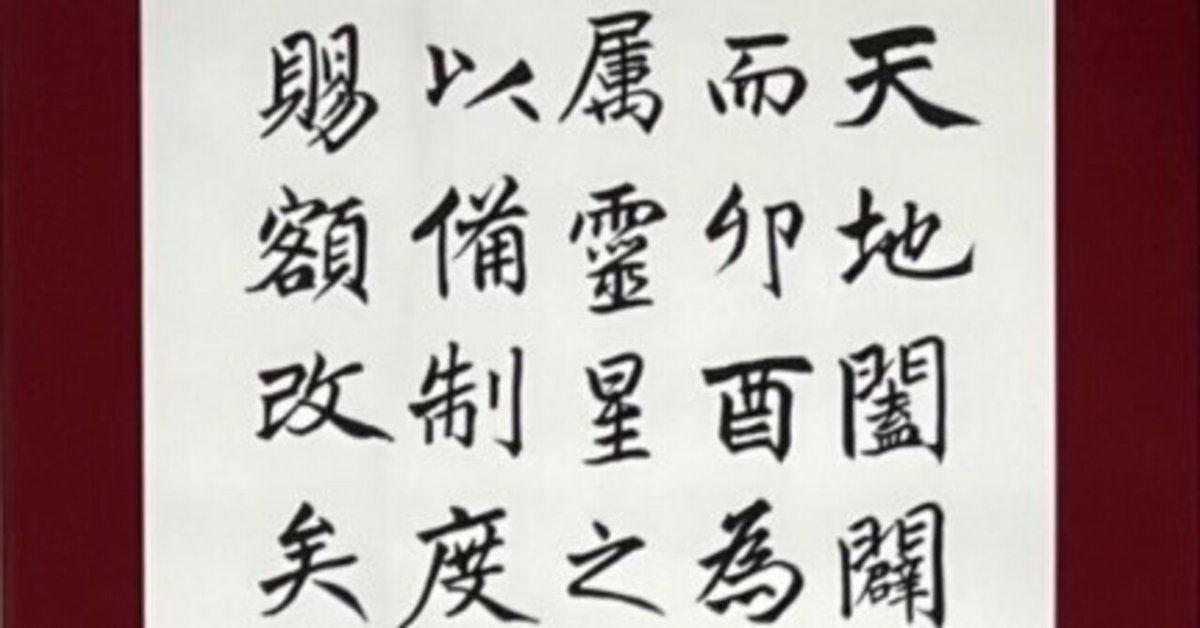 天地闔闢
而卯酉為
属靈星之
以備制度
賜額改矣